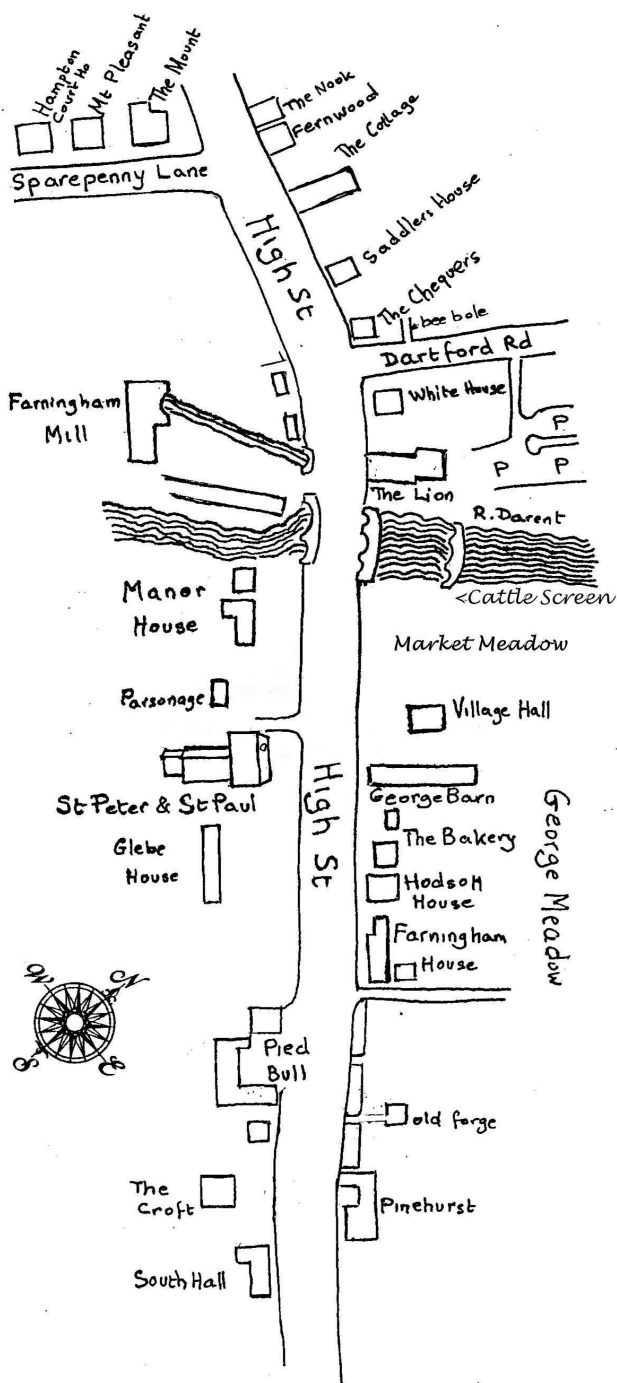 Hampton
Court Ho
Mt Pleasant
The Mount
The Nook
Fernwood
The Cottage
Sparepenny Lane
Saddlers House
High St
The Chequers
bee bole
Dartford Rd
Farningham
Mill
White House
P
P
P
The Lion
R. Darent
<Cattle Screen
Manor
House
Market Meadow
Parsonage
Village Hall
St Peter & St Paul
High St
George Barn
George Meadow
Glebe
House
The Bakery
Hodsoll
House
Farningham
House
W
N
S
E
Pied
Bull
old forge
The
Croft
Pinehurst
South Hall